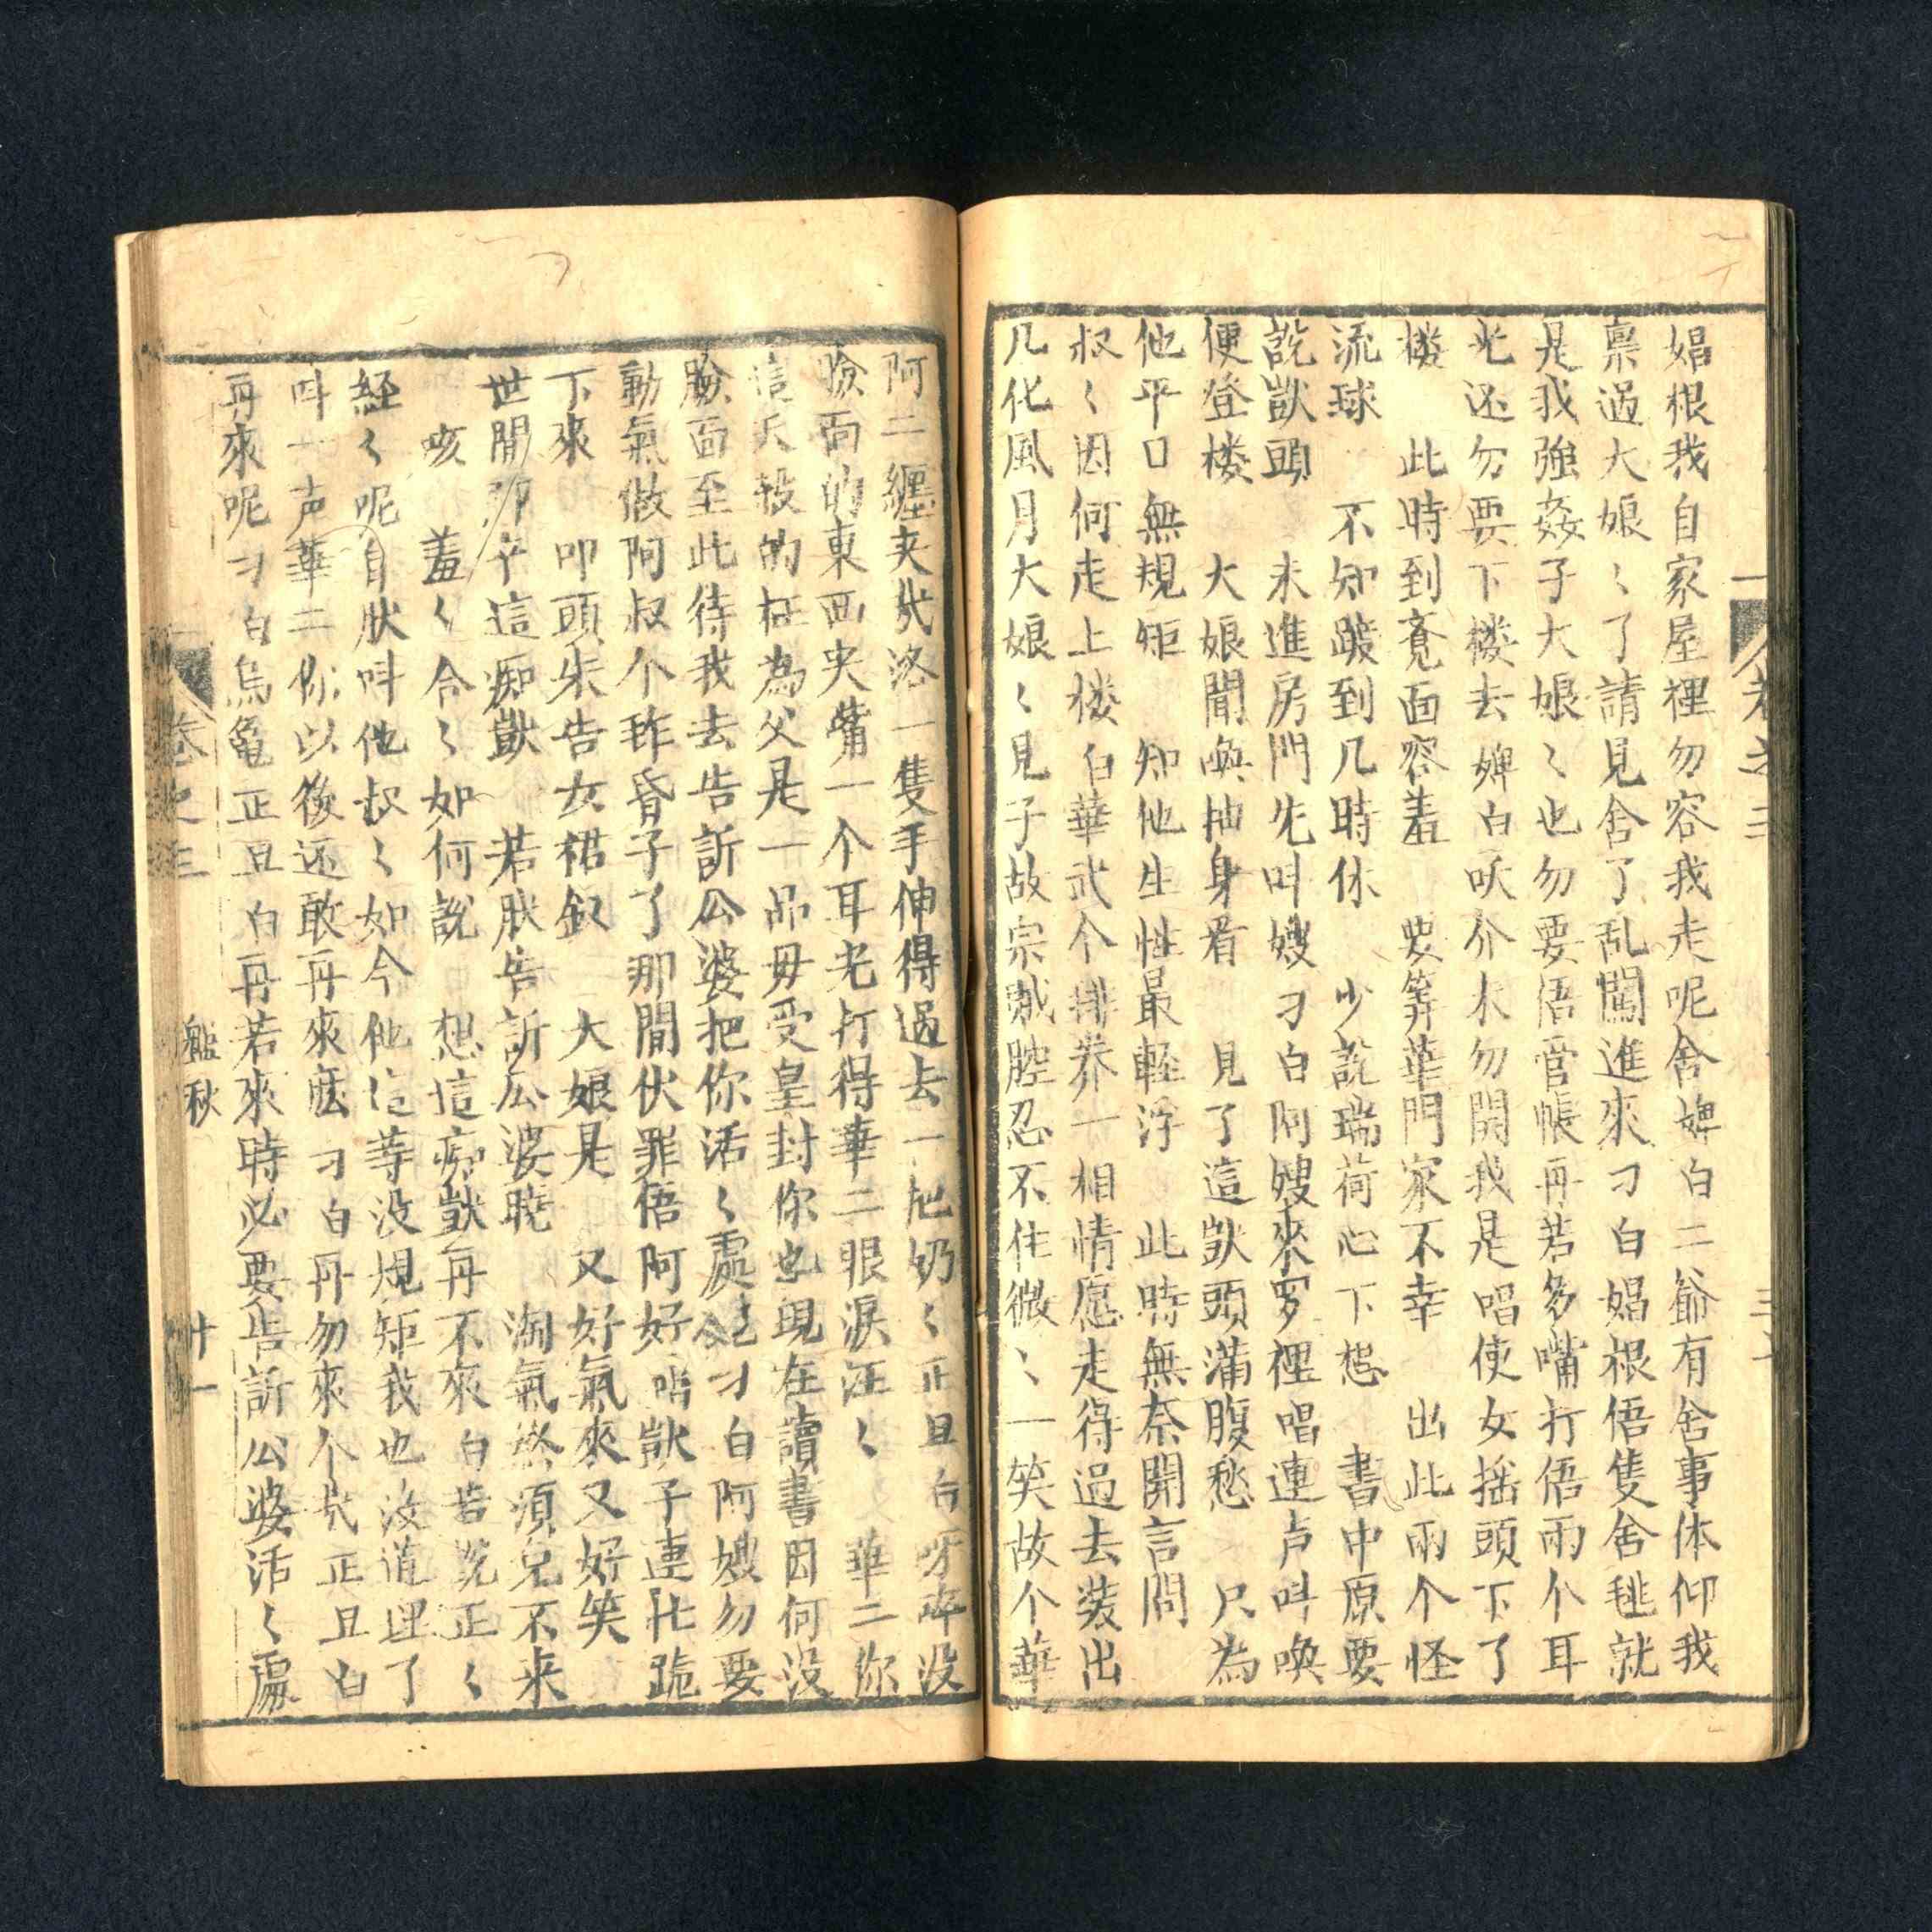 娼根我自家屋裡勿容我走呢舍婢白二爺有舍事体仰我
禀過大娘〻了請見舍了乱闖進來刁白娼根俉隻舍毴就
是我強姦子大娘〻也勿要俉管帳再若多嘴打俉兩个耳
光还勿要下楼去婢白呸介木勿開我是唱使女摇頭下了
楼 此時到覔面容羞 要筭華門家不幸 出此兩个怪
流球 不知踱到几時休 少說瑞荷心下想 書中原要
說獃頭 未進房門先叫嫂刁白阿嫂來罗裡唱連声叫喚
便登楼 大娘聞喚抽身看 見了這獃頭滿腹愁 只為
他平口無規矩 知他生性最軽浮 此時無奈開言問
叔〻因何走上楼白華武个排养一相情愿走得過去裝出
几化風月大娘〻見子故宗賊腔忍不住微〻一笑故个華
阿二纏夹弐洛一隻手伸得過去一把奶〻正旦白呀啐没
臉面的東西夹嘴一个耳光打得華二眼淚汪〻 華二你
這天殺的枉為父是一品毋受皇封你也現在讀書因何没
臉面至此待我去告訴公婆把你活〻處死刁白阿嫂勿要
動氣做阿叔个昨昏子了那間伏罪俉阿好唱獃子連忙跪
下來 叩頭来告女裙釵 大娘是 又好氣來又好笑
世間那有這痴獃 若肰告訴公婆曉 淘氣終須免不来
咳 羞〻合〻如何說 想這痴獃再不來白若說正〻
経〻呢自肰叫他叔〻如今他這等没規矩我也没道理了
叫一声華二你以後还敢再來庅刁白再勿來个哉正旦白
再來呢刁白烏龜正旦白再若來時必要告訴公婆活〻處
卷之三 艶秋 廿一